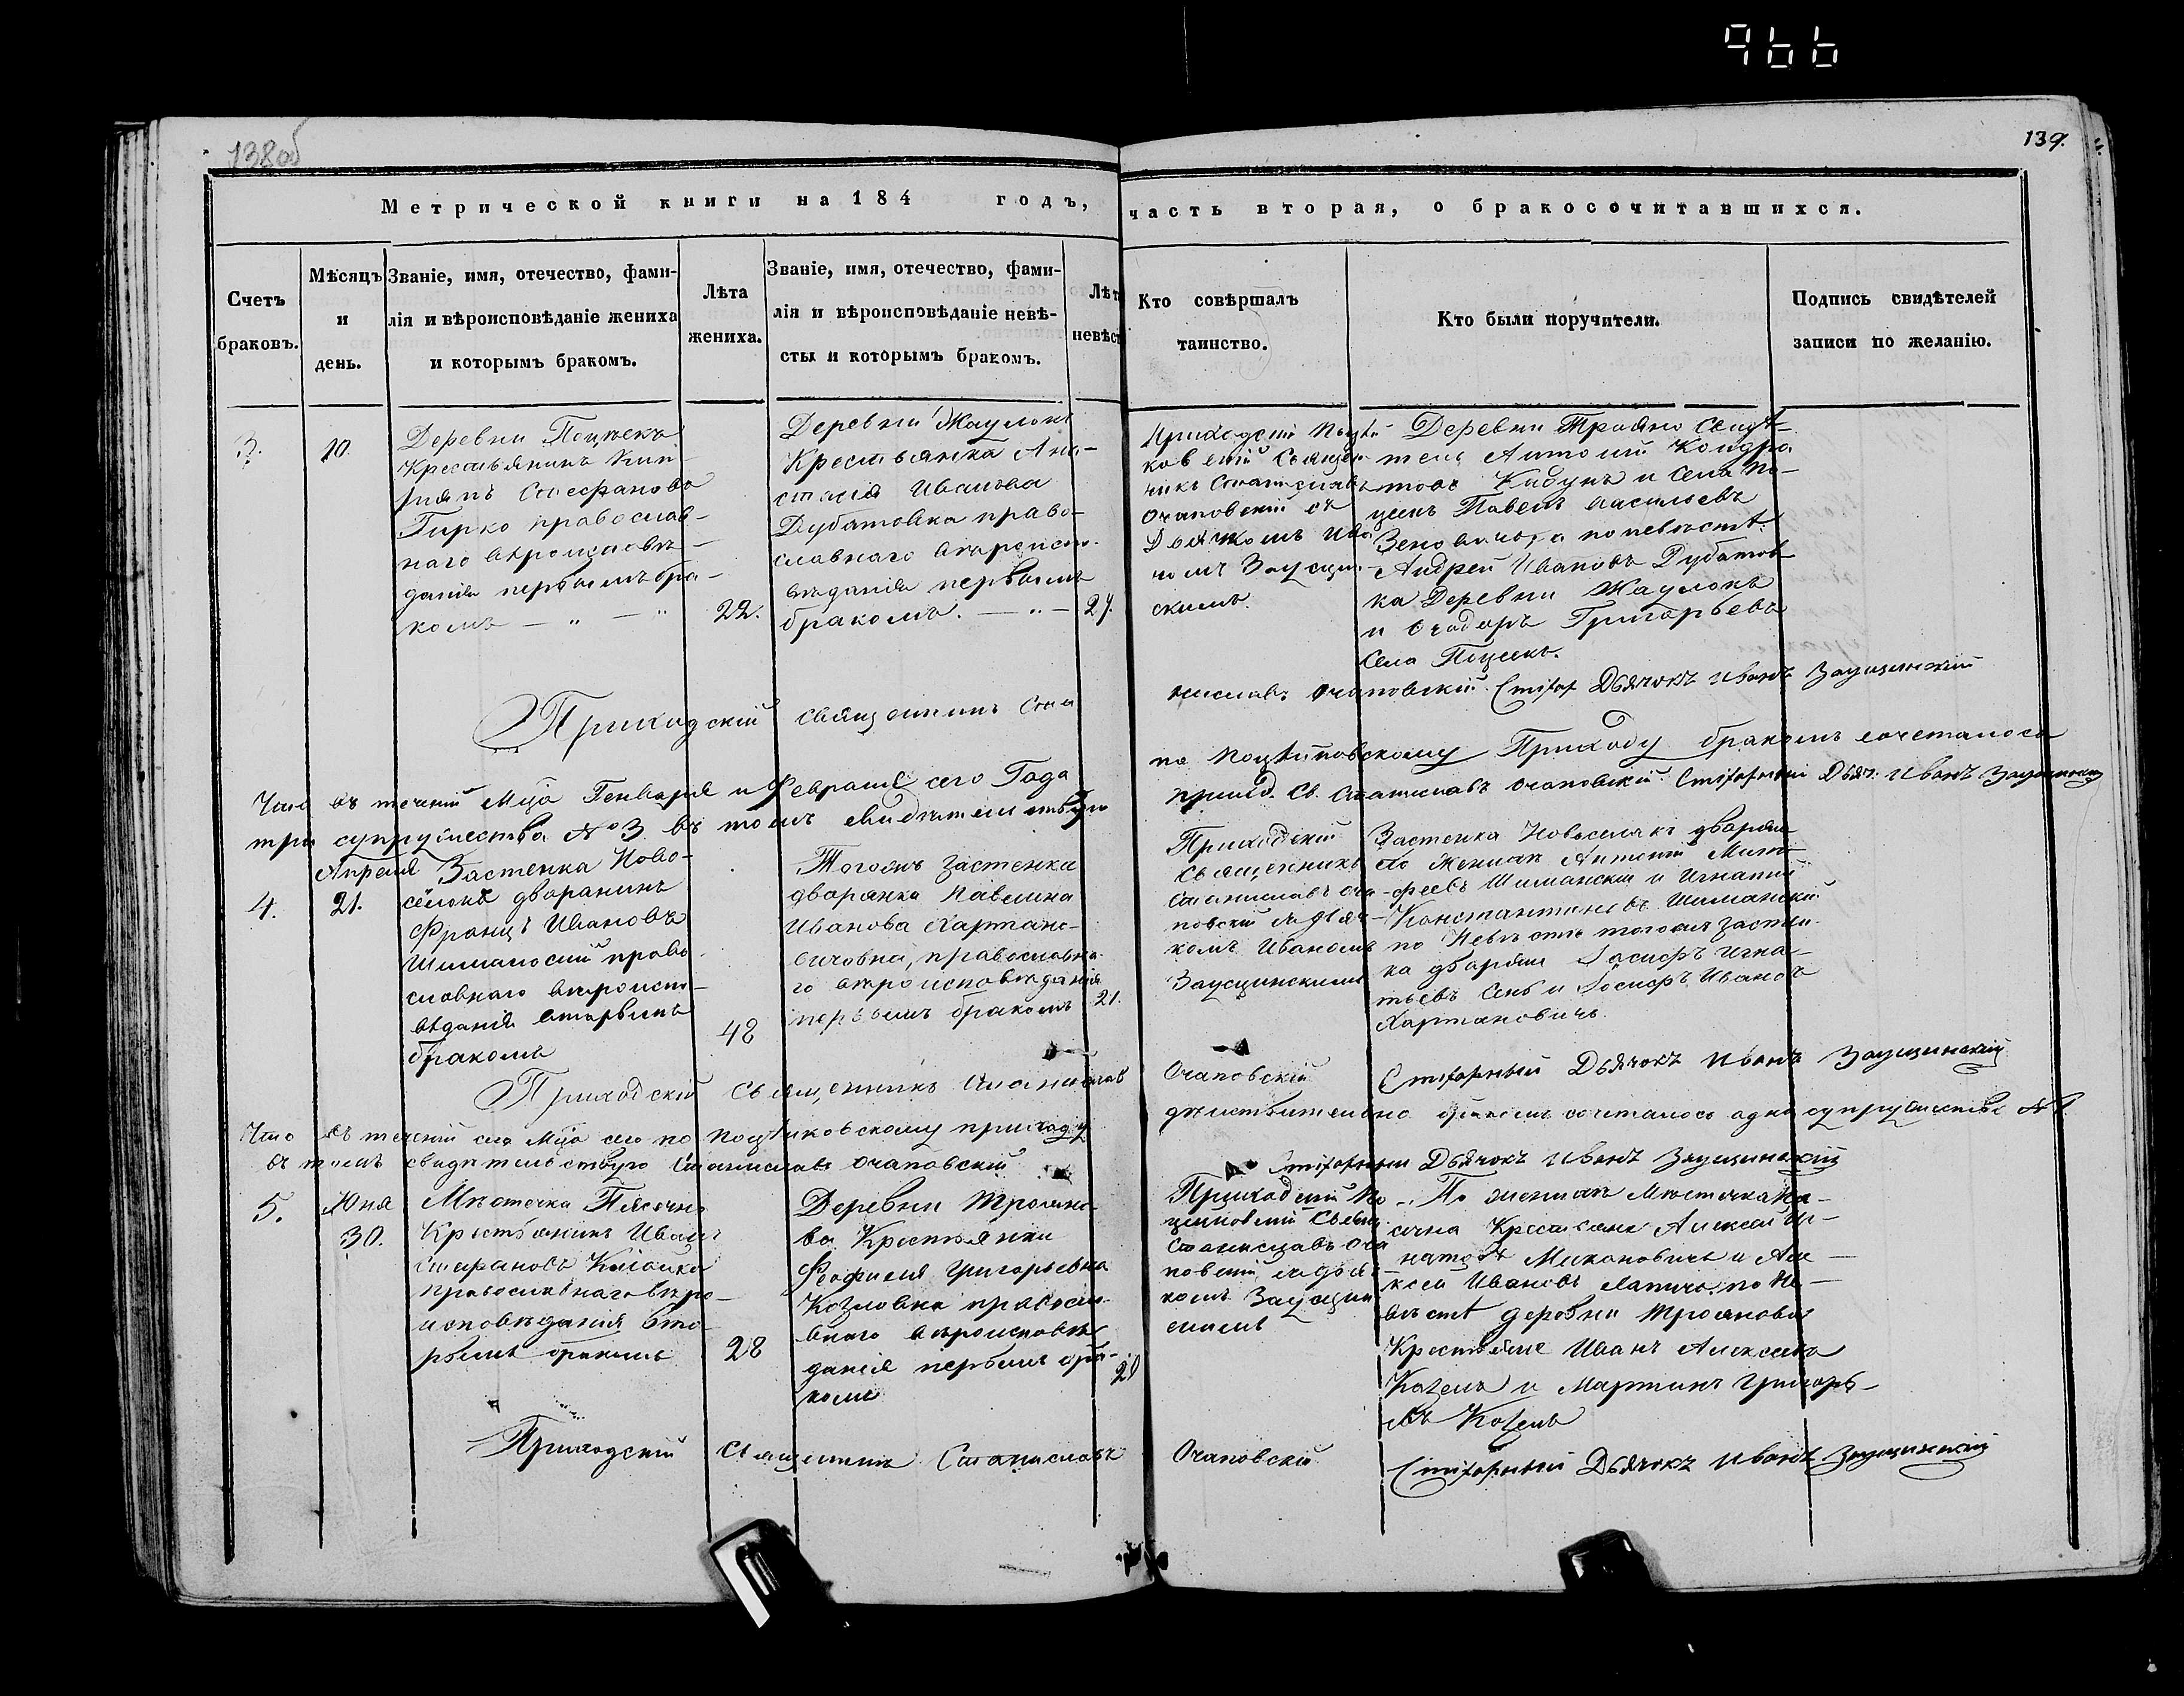 966
138об
139.
Метрической книги на 184 годъ, часть вторая, о бракосочитавшихся.
Счетъ браковъ.
Мѣсяцъ и день.
Званіе, имя, отечество, фами-
лія и вѣроисповѣданіе жениха
и которымъ бракомъ.
Лѣта
жениха.
Званіе, имя, отечество, фами-
лія и вѣроисповѣданіе невѣ-
сты и которымъ бракомъ.
Лѣт
невѣст
Кто совѣршалъ
таинство.
Кто были поручители.
Подпись свидѣтелей
записи по желанію.
3.
10.
Деревни Поцѣекъ
Крестьянинъ Кип-
ріянъ Стефановъ
Гирко православ-
наго вѣроисповѣ-
данія первымъ бра-
комъ — „ — „
22.
Деревни Жаулокъ
Крестьянка Ана-
стасія Иванова
Дубатовка право-
славнаго вѣроиспо-
вѣданія первымъ
бракомъ. — „ —
Приходскій Поцѣй
ковскій Священ-
никъ Станиславъ
Очаповскій съ
Дьячкомъ Ива
номъ Заусцин-
скимъ.
Деревни Трояно Свидѣ-
тель Антоній Кондра
товъ и Села По-
цеекъ Павелъ Васильевъ
по невѣстѣ
Андрей Ивановъ Дубатов
ка Деревни Жаулокъ
и Ѳеодоръ Григорьевъ
Села Поцеекъ.
Приходскій Священникъ Стани
ниславъ Очаповскій Дьячокъ Иванъ Заусцинскій
Что въ теченій Мца Генваря и Февраля сего Года по Поцѣйковскому Приходу бракомъ сочеталось
три супружества № 3 въ томъ свидѣтельствую приход. Св. Станиславъ Очаповскій Дьяч. Иванъ Заусцинскій
4.
Апреля
21.
Застенка Ново-
сёлокъ дворанинъ
Францъ Ивановъ
Шиманоскій право-
славнаго вѣроиспо-
вѣданія вторымъ
бракомъ
48
Тогожъ застенка
дворанка Павлина
Иванова Хартано-
вичовна, православна-
го вѣроисповѣданія
первымъ бракомъ
21.
Приходскій
Священникъ
Станиславъ Оча-
повскій съ дьяч-
комъ Иваномъ
Заусцинскимъ
Застенка Новоселокъ дворяне
по женихѣ Антоній Мато-
феевъ Шиманскій и Игнатій
Константиновъ Шиманскій
по Невѣстѣ тогожъ застен-
ка дворяне Іосифъ Игна-
тьевъ и Іосифъ Ивановъ
Хартановичъ.
Приходскій Священникъ Станиславъ
Очаповскій Дьячокъ Иванъ Заусцинскій
Что въ теченій сего Мца сего по Поцѣйковскому приходу дѣйствительно бракомъ сочеталось одно супружество № 1
въ томъ свидѣтельствую Станиславъ Очаповскій Дьячокъ Иванъ Заусцинскій
5.
Юня
30.
Мѣстечка Пясочно
Крестьянинъ Иванъ
Стефановъ
православнаго вѣро-
исповѣданія вто-
рымъ бракомъ
28
Деревни Трояно-
ва Крестьянка
Феофилія Григорьевна
Козловна правосла-
внаго вѣроисповѣ-
данія первымъ бра-
комъ
Приходскій По
цейковскій Священ
Станиславъ Оча
повскій съ дьяч-
комъ Заусцин
скимъ
По женихѣ Мѣстечка Пя-
сочна Крестьяне Алексей Иг-
натовъ и Але-
ксей Ивановъ по Не-
вѣстѣ деревни Трояновы
Крестьяне Иванъ Алексеевъ
Козелъ и Мартинъ Григорь-
евъ Козелъ
Приходскій Священникъ Станиславъ
Очаповскій Дьячокъ Иванъ Заусцинскій